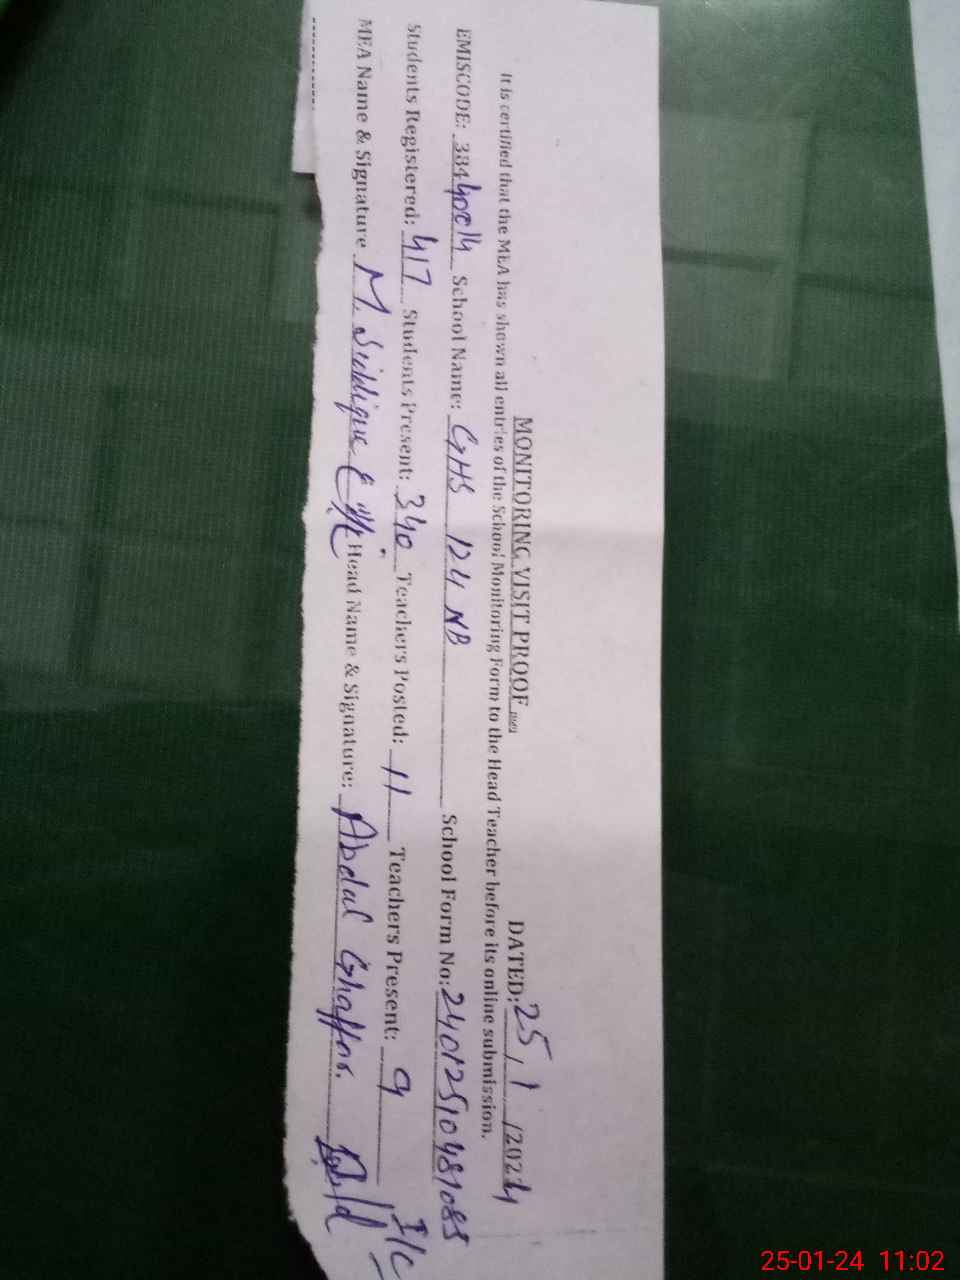 MONITORING VISIT PROOF DATED: 25/1/2024
It is certified that the MEA has shown all entries of the School Monitoring Form to the Head Teacher before its online submission.
EMISCODE: 38440014 School Name: GHS 124 NB School Form No: 24012510481085
Students Registered: 417 Students Present: 340 Teachers Posted: 11 Teachers Present: 9
MEA Name & Signature M. Siddique Head Name & Signature: Abdul Ghaffar. I/C
25-01-24 11:02